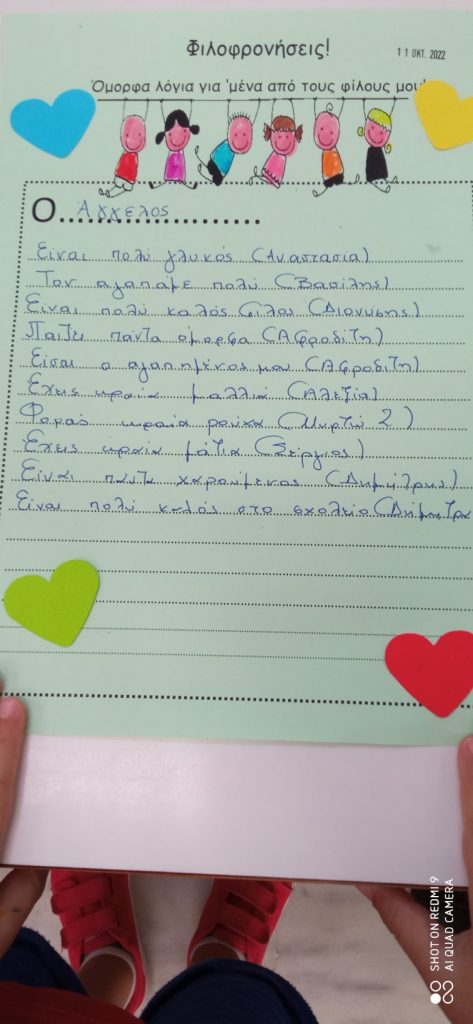 Φιλοφρονήσεις!
11 ΟΚΤ. 2022
Όμορφα λόγια για 'μένα από τους φίλους μου!
Ο Άγγελος
Είναι πολύ γλυκός (Αναστασία)
Τον αγαπάμε πολύ (Βασίλης)
Είναι πολύ καλός φίλος (Διονύσης)
Παίζει πάντα όμορφα (Αφροδίτη)
Είσαι ο αγαπημένος μου (Αφροδίτη)
Έχεις ωραία μαλλιά (Αλεξία)
Φοράς ωραία ρούχα (Μυρτώ 2)
Έχεις ωραία μάτια (Σέργιος)
Είναι πάντα χαρούμενος (Δημήτρης)
Είναι πολύ καλός στο σχολείο (Δήμητρα
SHOT ON REDMI 9
AI QUAD CAMERA